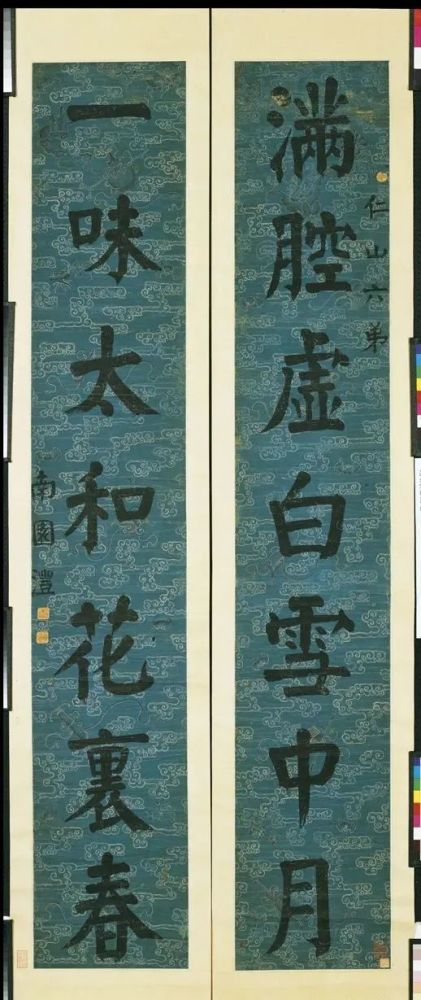 滿腔虛白雪中月
仁山六弟
一味太和花裏春
南園灃